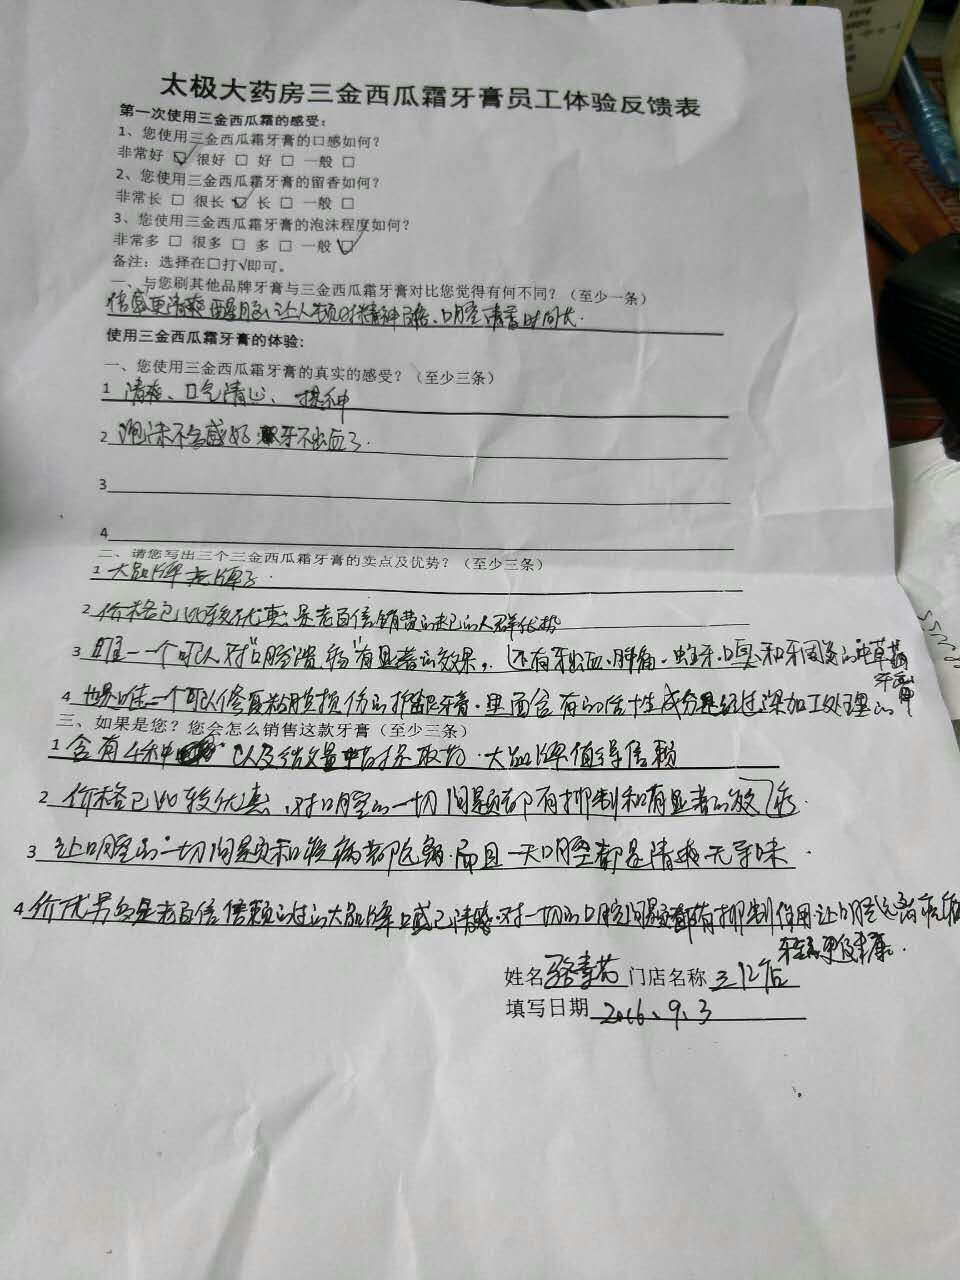 太极大药房三金西瓜霜牙膏员工体验反馈表
第一次使用三金西瓜霜的感受：
1、您使用三金西瓜霜牙膏的口感如何？
非常好 ☑ 很好 □ 好 □ 一般 □
2、您使用三金西瓜霜牙膏的留香如何？
非常长 □ 很长 ☑ 长 □ 一般 □
3、您使用三金西瓜霜牙膏的泡沫程度如何？
非常多 □ 很多 □ 多 □ 一般 ☑
备注：选择在□打√即可。
一、与您刷其他品牌牙膏与三金西瓜霜牙膏对比您觉得有何不同？（至少一条）
更清爽 醒脑、让人顿时精神 口腔清香时间长.
使用三金西瓜霜牙膏的体验：
一、您使用三金西瓜霜牙膏的真实的感受？（至少三条）
1 清爽、口气清心、提神
2 泡沫 感好 牙不出血了.
3
4
二、请您写出三个三金西瓜霜牙膏的卖点及优势？（至少三条）
1 大品牌 老牌子.
2 价格 比较优惠 是老百信销费 的人群优势
3 唯一一个可以对"口腔溃疡"有显著的效果，还有牙出血、肿痛、蛀牙、口臭和牙周炎的中草药
牙膏
4 世界唯一一个可以修复粘膜损伤的 牙膏.里面含有的活性成分是经过深加工处理的
三、如果是您？您会怎么销售这款牙膏（至少三条）
1 含有4种 以及 中 提取 大品牌值得信赖
2 价格 比较优惠、对口腔的一切问题都有抑制和有显著的效
3 让口腔的一切问题和 病都 而且一天口腔都是清爽无异味.
4 价优 是老百信信赖的过的大品牌 清 对一切的口腔问题都有抑制作用.让口腔远离
更健康.
姓名 门店名称
填写日期 2016、9、3